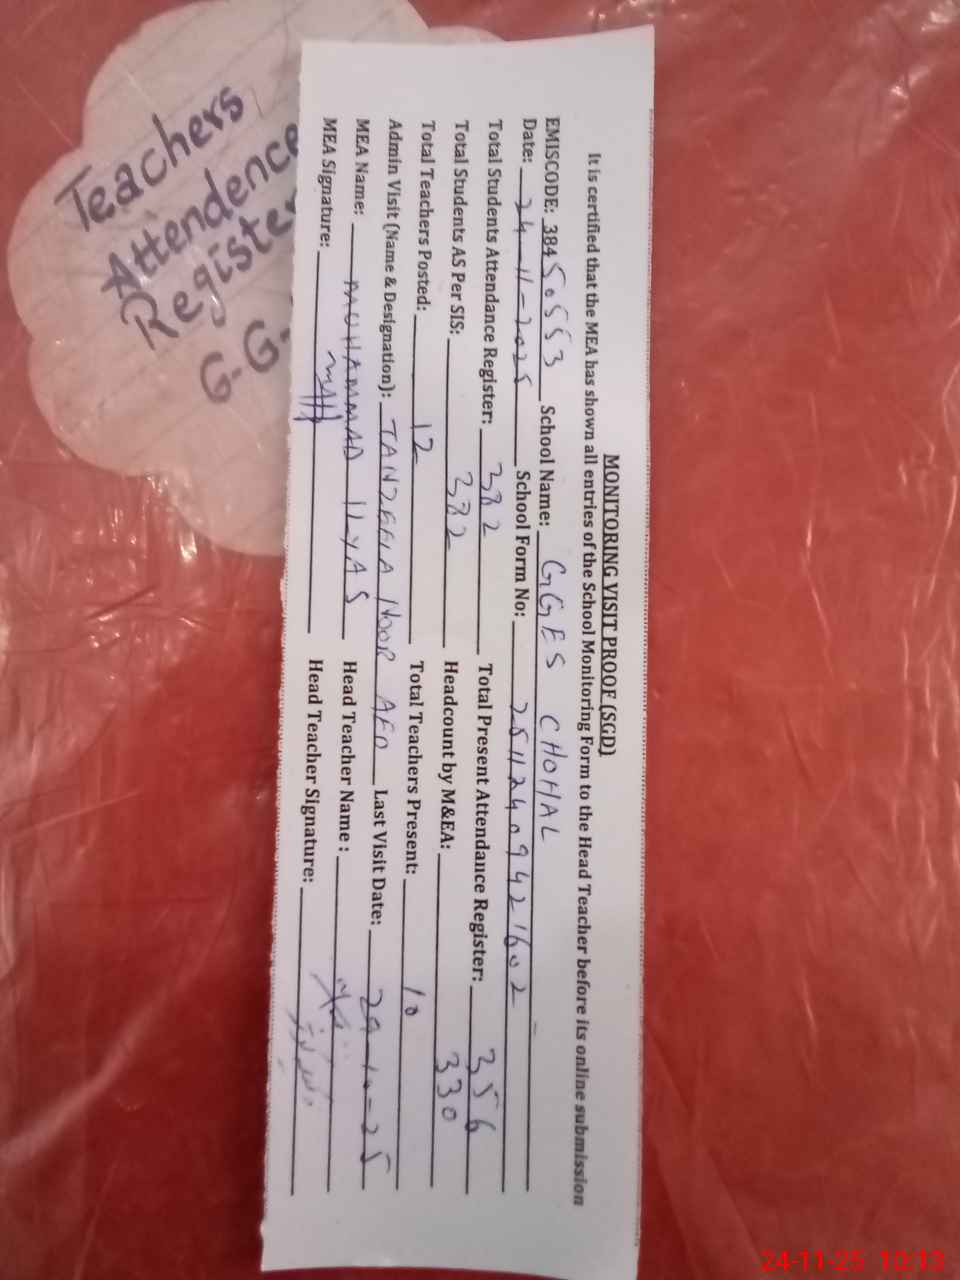 MONITORING VISIT PROOF (SGD)
It is certified that the MEA has shown all entries of the School Monitoring Form to the Head Teacher before its online submission
EMISCODE: 38450553 School Name: GGES CHOHAL
Date: 24-11-2025 School Form No: 25112409421602
Total Students Attendance Register: 382 Total Present Attendance Register: 356
Total Students AS Per SIS: 382 Headcount by M&EA: 330
Total Teachers Posted: 12 Total Teachers Present: 10
Admin Visit (Name & Designation): TANZEELA NOOR AEO Last Visit Date: 29-10-25
MEA Name: MUHAMMAD ILYAS Head Teacher Name :
MEA Signature: Head Teacher Signature:
Teachers
Attendence
Register
G-G-
24-11-25 10:13